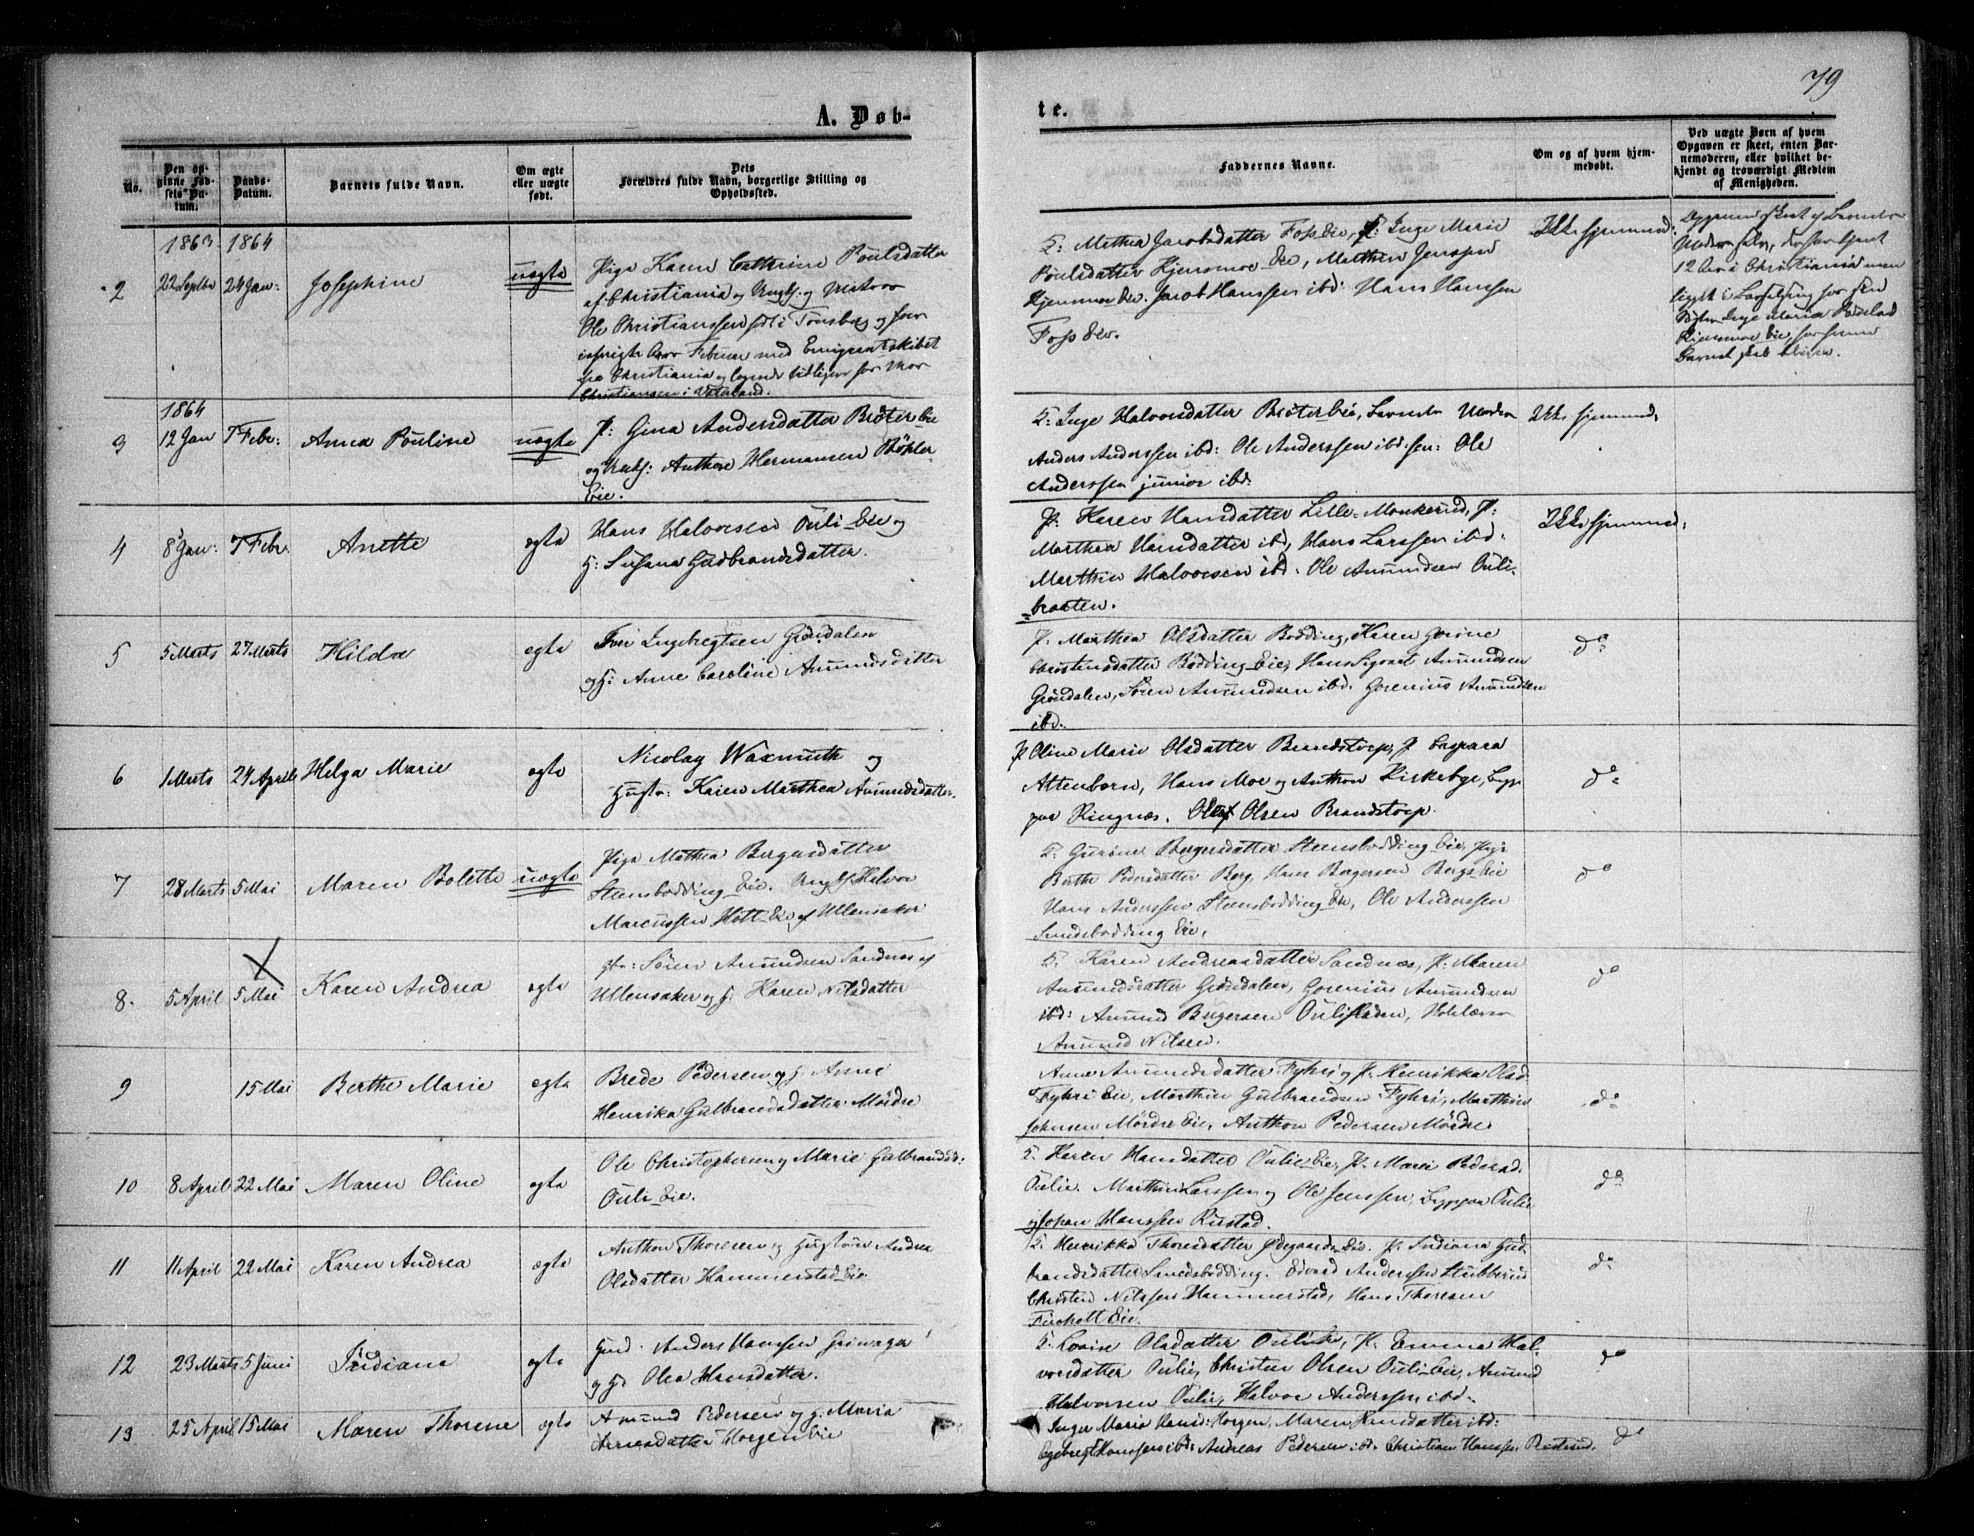 79
A. Døb-
te.
No.
Den op-
givne Fød-
sels-Da-
tum.
Daabs-
Datum.
Barnets fulde Navn.
Om ægte
eller uægte
født.
Dets
Forældres fulde Navn, borgerlige Stilling og
Opholdssted.
Faddernes Navne.
Om og af hvem hjem-
medøbt.
Ved uægte Børn af hvem
Opgaven er skeet, enten Bar-
nemoderen, eller hvilket be-
kjendt og troværdigt Medlem
af Menigheden.
1863 1864
2
22 Septbr
24 Jan:
Josephine
uægte
Pige Karen Cathrine Poulsdatter
af Christiania og Ungk. og Matros
Ole Christianssen født i Tønsberg og for-
Februar med Emigrantskibet
fra Christiania og
Christiansen i Vaterland.
G: Mathea Jacobsdatter Foss Eie, P: Inge Marie
Poulsdatter Kjensmoe Eie, Mathen Jenssen
Kjensmoe Eie. Jacob Hanssen ibd: Hans Hansen
Foss Eie.
Ikke hjemmed:
Opgaven skeet af Barnets
Moder selv, der har tjent
12 Aar i Christiania men
ligget i Barselseng hos sin
Søster Inge Maria Poulsd
Kjensmoe Eie, hos hvem
Barnet skal blive.
1864
3
12 Jan
7 Febr:
Anna Pouline
uægte
P: Gina Andersdatter Brøter Eie
og Ungk: Anthon Hermansen Bøhler
Eie.
G: Inge Halvorsdatter Brøter Eie, Barnets Moder
Anders Anderssen ibd: Ole Anderssen ibd: sen: Ole
Anderssen junior ibd:
Ikke hjemmed,
4
8 Jan:
7 Febr:
Anette
egte
Hans Halvorsen Ouli Eie og
H: Susana Gudbrandsdatter.
P. Karen Hansdatter Lille-Monkerud, P:
Marthea Hansdatter ibd, Hans Larssen ibd.
Marthin Halvorsen ibd. Ole Amundsen Ouli-
braaten.
Ikke hjemmed:
5
5 Marts
27 Marts
Hilda
egte
Iver Ingebregtsen Grøndalen
og H: Anne Caroline Amundsdatter
P: Marthea Olsdatter Bodding, Karen Gorine
Christensdatter Bodding Eie, Hans Sigvart Amundsen
Grøndalen, Søren Amundsen ibd. Gorenius Amundsen
ibd.
do
6
1 Marts
24 April
Helga Marie
egte
Nicolay Waxmuth og
Hustr: Karen Marthea Amundsdatter.
P Oline Marie Olsdatter Brandstorp, P Caspara
Altenborn, Hans Moe og Anthon Kirkebye, begge
paa Ringnæs. Oluf Olsen Brandstorp.
do
7
28 Marts
5 Mai
Maren Bolette
uægte
Pige Mathea Bergersdatter
Steensbodding Eie. Ungk Halvor
Marcussen Holt Eie af Ullensaker
G. Gurine Bergersdatter Steensbodding Eie, Pige
Berthe Pedersdatter Berg, Hans Bergersen Bergs Eie
Hans Anderssen Steensbodding Eie, Ole Anderssen
Smedsbodding Eie,
do
8.
5 April
5 Mai
Karen Andrea
egte
Søren Amundsen Sandnes af
Ullensaker og H. Karen Nilsdatter
G. Karen Andreasdatter Sandnæs, P. Maren
Amundsdatter Grøndalen, Gorenius Amundsen
ibd: Amund Bergersen Ouli
Amund Nilsen.
do
9
15 Mai
Berthe Marie
egte
Brede Pedersen og H. Anne
Henrika Gulbrandsdatter Mørdre
Anne Amundsdatter Fyhri og P. Henrikka Olsd
Fyhri Eie, Marthin Gulbrandsen Fyhri, Marthin
Johnsen Mørdre Eie, Anthon Pedersen Mørdre
do
10
8 April
22 Mai
Maren Oline
egte
Ole Christophersen og Marie Gulbrandsd:
Ouli Eie.
G. Karen Hansdatter Oulie Eie, P. Marie Pedersd.
Oulie. Marthin Larssen og Ole Jenssen, begge paa Oulie
og Johan Hanssen Rustad.
do
11
11 April
22 Mai
Karen Andrea
ægte
Anthon Thoresen og Hustrue Andrea
Olsdatter Hammerstad Eie
G. Henrikka Thorsdatter Ødegaards Eie. P. Indiana Gud-
brandsdatter Smedsbodding. Edvard Anderssen Stubberud
Christen Nilssen Hammerstad, Hans Thoresen
Eie.
do
12
23 Marts
5 Juni
Indiana
egte
Gmd. Anders Hanssen
og H. Olea Hansdatter.
G. Lovise Olsdatter Oulie, P. Emma Hal-
vorsdatter Oulie, Christen Olsen Ouli Eie, Amund
Halvorsen Oulie, Halvor Anderssen ibd.
do
13
25 April
15 Mai
Maren Thorene
egte
Amund Pedersen og H: Maria
Arnesdatter Horgen Eie
Inger Marie Hansd: Horgen, Maren Hansdatter ibd:
Engebregt Hanssen ibd: Andreas Pedersen ibd. Christian Hanssen Rustad.
do